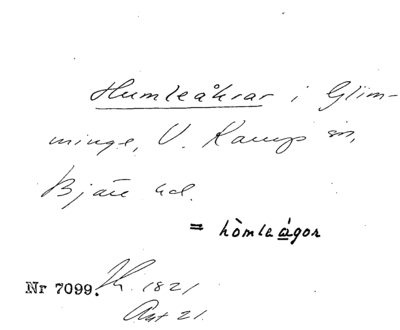 Humleåkrar i Glim-
minge, V. Karup sn,
Bjäre hd.
= hòmleágor
Nr 7099. 1821
21.